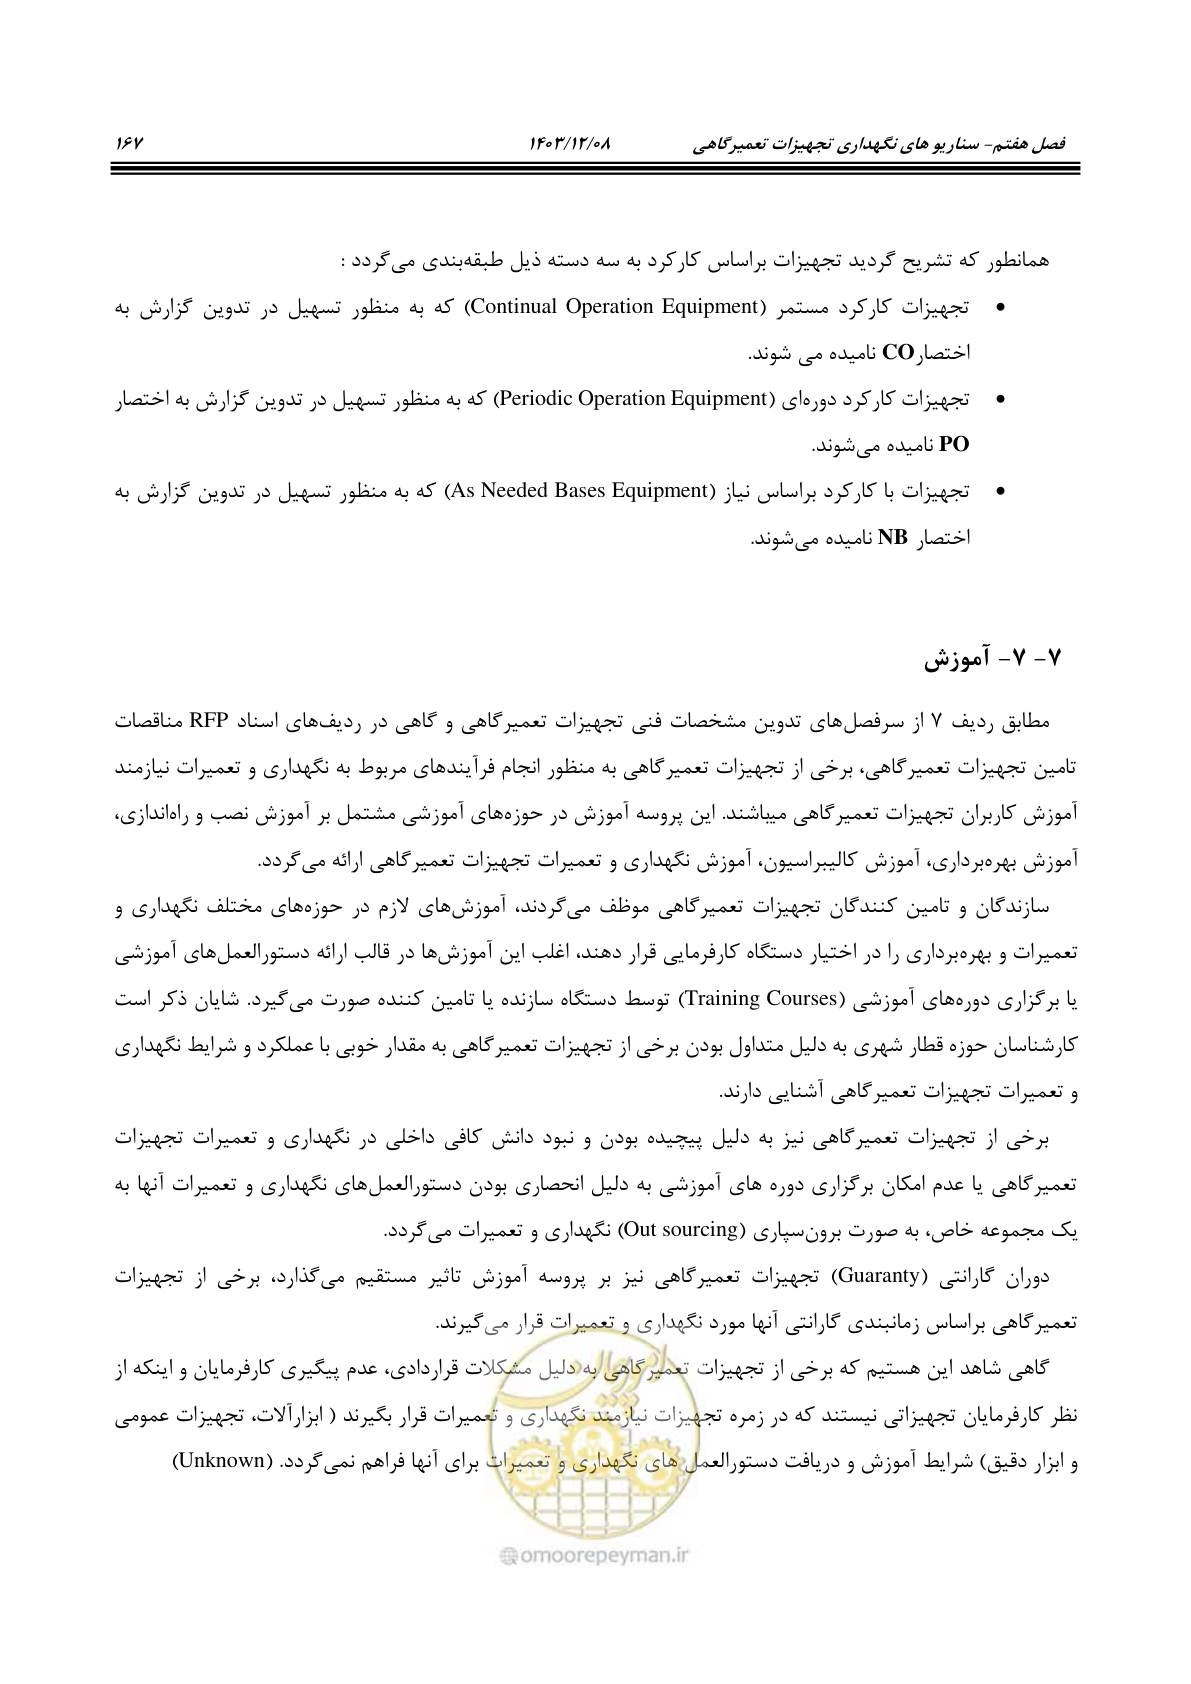 فصل هفتم- سناریو های نگهداری تجهیزات تعمیرگاهی ۱۴۰۳/۱۲/۰۸ ۱۶۷
همانطور که تشریح گردید تجهیزات براساس کارکرد به سه دسته ذیل طبقه‌بندی می‌گردد :
• تجهیزات کارکرد مستمر (Continual Operation Equipment) که به منظور تسهیل در تدوین گزارش به
اختصار CO نامیده می شوند.
• تجهیزات کارکرد دوره‌ای (Periodic Operation Equipment) که به منظور تسهیل در تدوین گزارش به اختصار
PO نامیده می‌شوند.
• تجهیزات با کارکرد براساس نیاز (As Needed Bases Equipment) که به منظور تسهیل در تدوین گزارش به
اختصار NB نامیده می‌شوند.
۷- ۷- آموزش
مطابق ردیف ۷ از سرفصل‌های تدوین مشخصات فنی تجهیزات تعمیرگاهی و گاهی در ردیف‌های اسناد RFP مناقصات
تامین تجهیزات تعمیرگاهی، برخی از تجهیزات تعمیرگاهی به منظور انجام فرآیندهای مربوط به نگهداری و تعمیرات نیازمند
آموزش کاربران تجهیزات تعمیرگاهی میباشند. این پروسه آموزش در حوزه‌های آموزشی مشتمل بر آموزش نصب و راه‌اندازی،
آموزش بهره‌برداری، آموزش کالیبراسیون، آموزش نگهداری و تعمیرات تجهیزات تعمیرگاهی ارائه می‌گردد.
سازندگان و تامین کنندگان تجهیزات تعمیرگاهی موظف می‌گردند، آموزش‌های لازم در حوزه‌های مختلف نگهداری و
تعمیرات و بهره‌برداری را در اختیار دستگاه کارفرمایی قرار دهند، اغلب این آموزش‌ها در قالب ارائه دستورالعمل‌های آموزشی
یا برگزاری دوره‌های آموزشی (Training Courses) توسط دستگاه سازنده یا تامین کننده صورت می‌گیرد. شایان ذکر است
کارشناسان حوزه قطار شهری به دلیل متداول بودن برخی از تجهیزات تعمیرگاهی به مقدار خوبی با عملکرد و شرایط نگهداری
و تعمیرات تجهیزات تعمیرگاهی آشنایی دارند.
برخی از تجهیزات تعمیرگاهی نیز به دلیل پیچیده بودن و نبود دانش کافی داخلی در نگهداری و تعمیرات تجهیزات
تعمیرگاهی یا عدم امکان برگزاری دوره های آموزشی به دلیل انحصاری بودن دستورالعمل‌های نگهداری و تعمیرات آنها به
یک مجموعه خاص، به صورت برون‌سپاری (Out sourcing) نگهداری و تعمیرات می‌گردد.
دوران گارانتی (Guaranty) تجهیزات تعمیرگاهی نیز بر پروسه آموزش تاثیر مستقیم می‌گذارد، برخی از تجهیزات
تعمیرگاهی براساس زمانبندی گارانتی آنها مورد نگهداری و تعمیرات قرار می‌گیرند.
گاهی شاهد این هستیم که برخی از تجهیزات تعمیرگاهی به دلیل مشکلات قراردادی، عدم پیگیری کارفرمایان و اینکه از
نظر کارفرمایان تجهیزاتی نیستند که در زمره تجهیزات نیازمند نگهداری و تعمیرات قرار بگیرند ( ابزارآلات، تجهیزات عمومی
و ابزار دقیق) شرایط آموزش و دریافت دستورالعمل های نگهداری و تعمیرات برای آنها فراهم نمی‌گردد. (Unknown)
امور پیمان
@omoorepeyman.ir